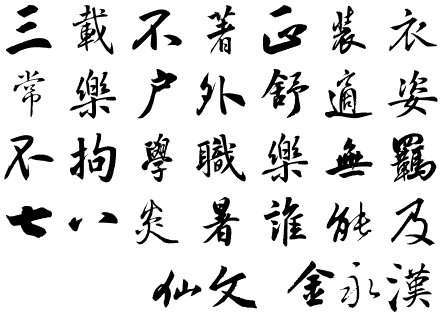 三載不著正裝衣
常樂户外舒適姿
不拘學職樂無羈
七八炎暑誰能及
仙文 金永漢